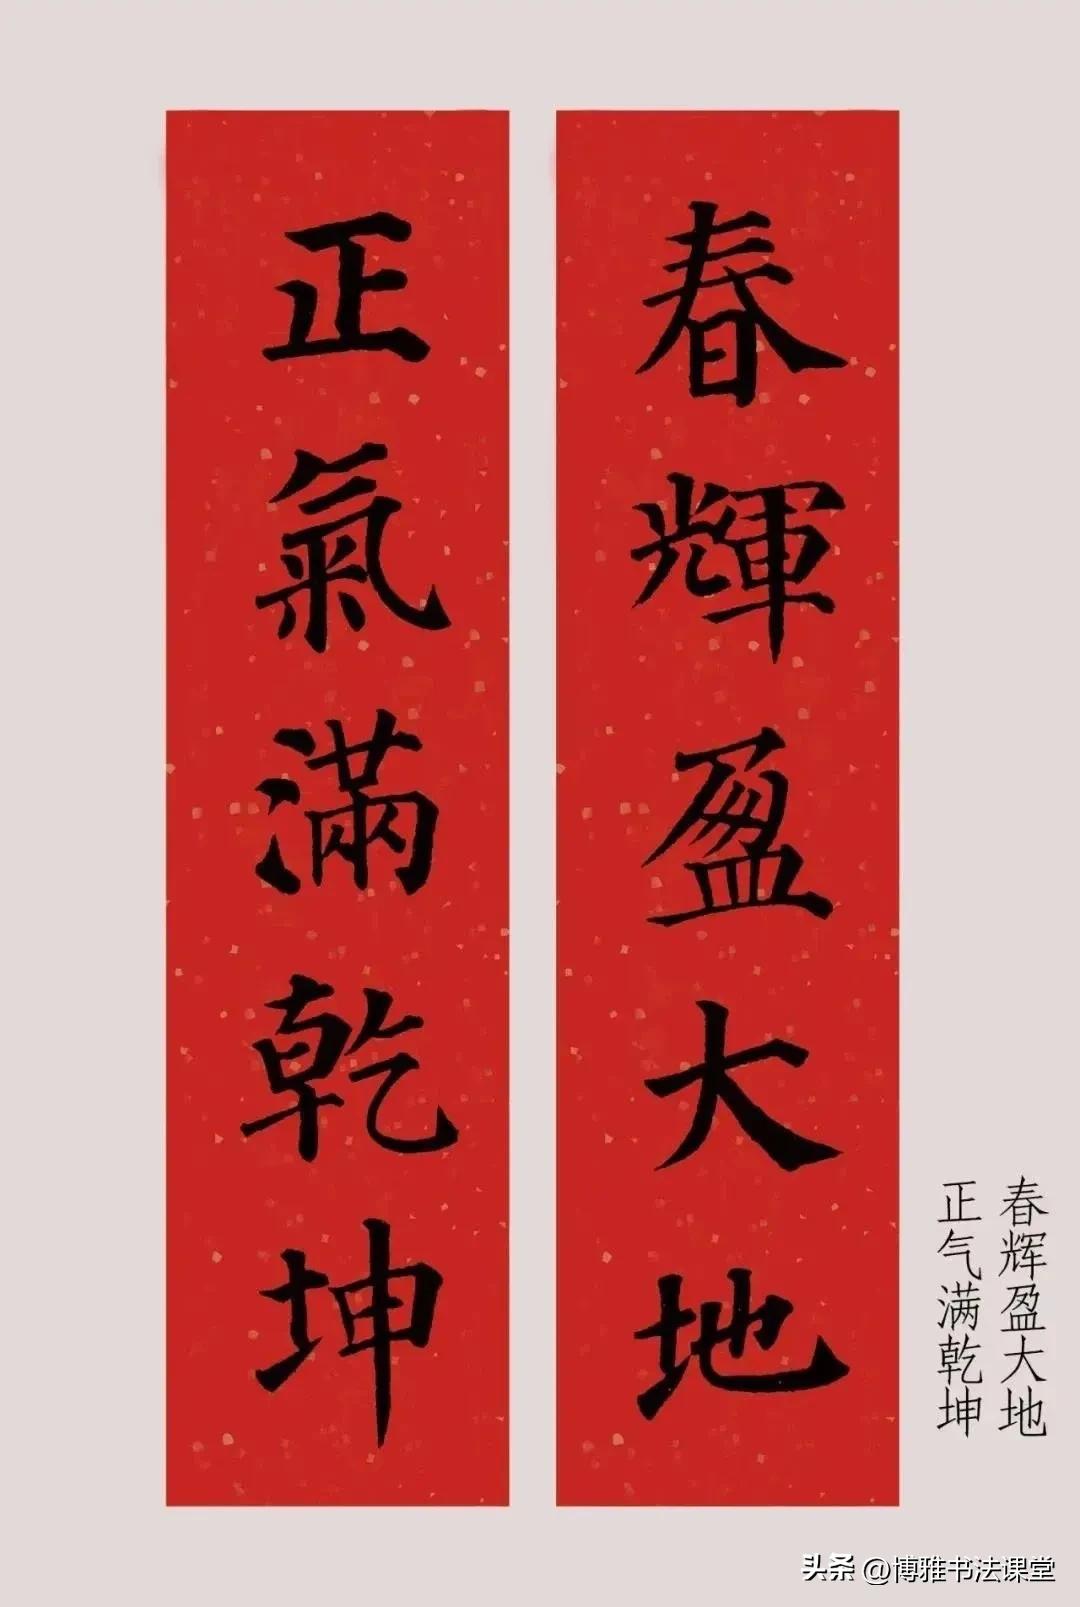 春輝盈大地
正氣滿乾坤
春辉盈大地
正气满乾坤
头条 @博雅书法课堂